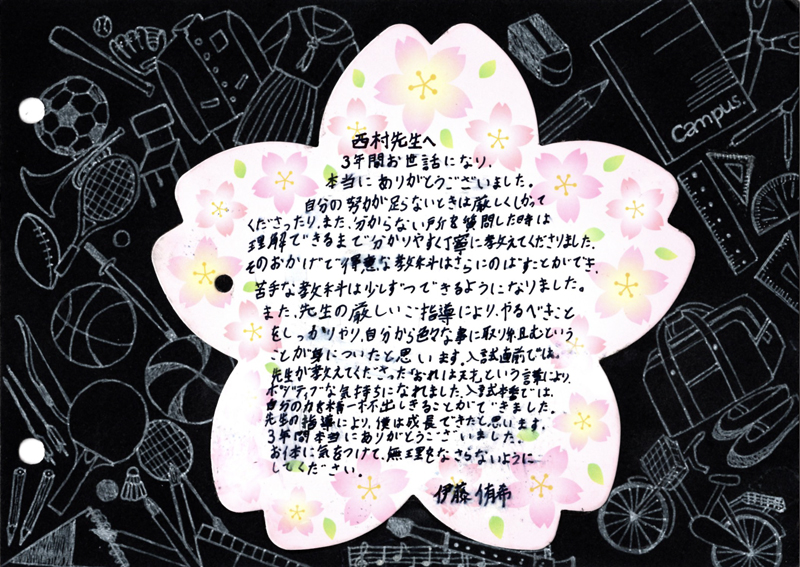 西村先生へ
3年間お世話になり、
本当にありがとうございました。
自分の努力が足らないときは厳しくしかって
くださったり、また、分からない所を質問した時は
理解できるまで分かりやすく丁寧に教えてくださりました。
そのおかげで得意な教科はさらにのばすことができ、
苦手な教科は少しずつできるようになりました。
また、先生の厳しいご指導により、やるべきこと
をしっかりやり、自分から色々な事に取り組むという
ことが身についたと思います。入試直前では、
先生が教えてくださった"おれは天才"という言葉により、
ポジティブな気持ちになれました。入試本番では、
自分の力を精一杯出しきることができました。
先生の指導により、僕は成長できたと思います。
3年間本当にありがとうございました。
お体に気をつけて、無理をなさらないように
してください。
伊藤侑希
Campus.